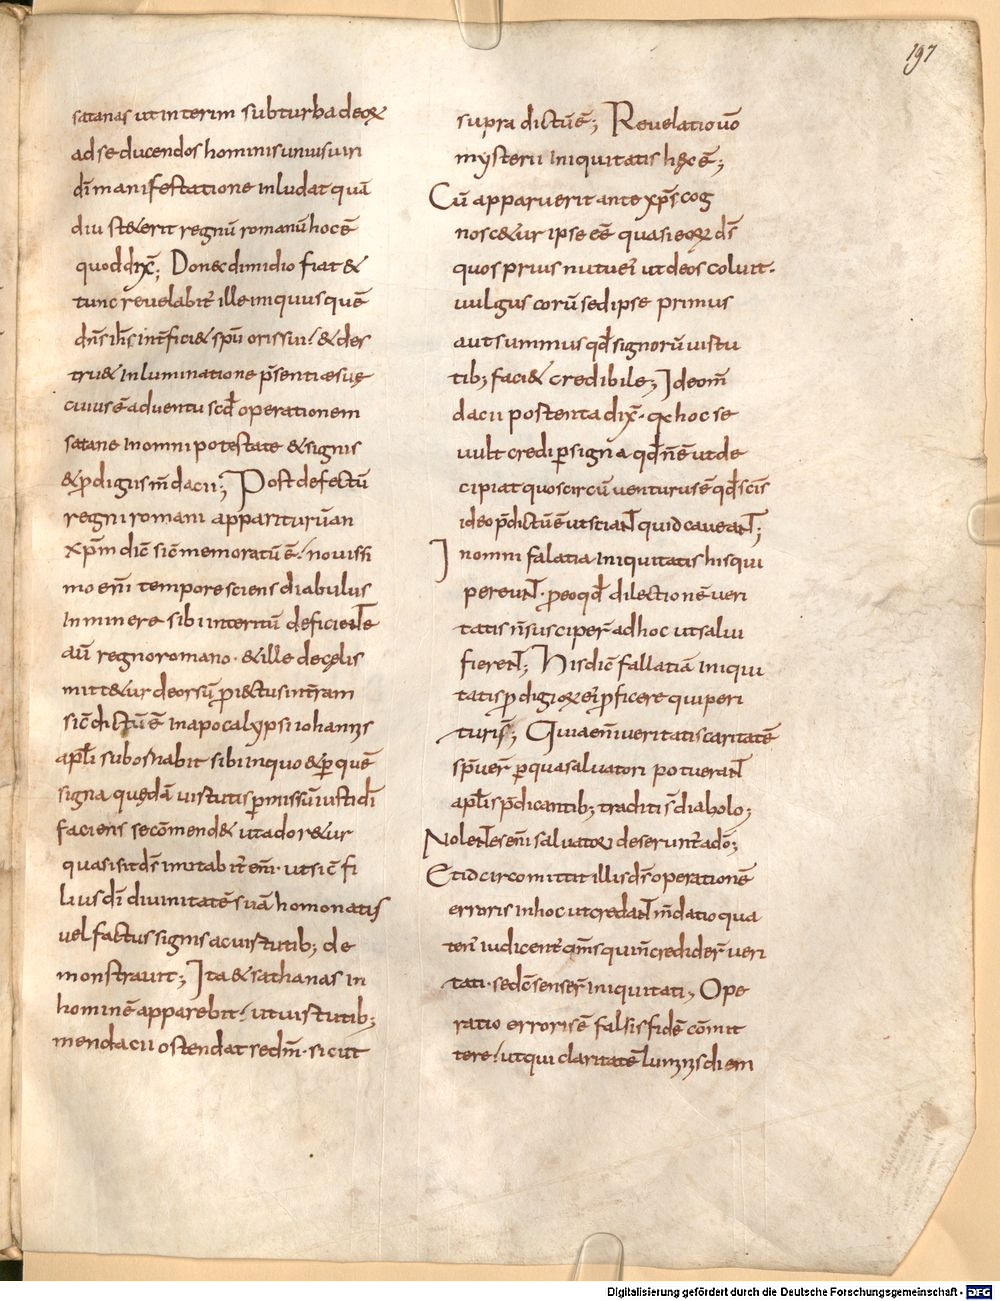 197
satanas ut interim subturba deoꝝ
ad seducendos hominis unius uiri
dī manifestatione inludat quā
diu stet&erit regnū romanū hoc ē
quod dix̄; Donec dimidio fiat &
tunc reuelabit̄ ille iniquus quē
dn̄s ih̄s int̄fici& spū oris sui! & des
tru& inluminatione p̄sentiæ suę
cuius ē aduentu scd̄ operationem
satane in omni potestate & signis
& ꝓdigiis m̄dacii; Post defectū
regni romani appariturū an
xp̄m dic̄ sic̄ memoratū ē! nouissi
mo em̄ tempore sciens diabulus
inminere sibi interitū deficiente
au̅ regno romano · & ille de cęlis
mitt&ur deorsū ꝓiectus in t̄ram
sic̄ dictū ē in apocalypsi iohannis
apl̄i subornabit sibi in quo & ꝑ quē
signa quędā uirtutis ꝑmissū iusti dī
faciens se cōmend& ut ador&ur
quasi sit ds̄ imitabit̄ em̄ · ut sic̄ fi
lius dī diuinitatē suā homo natus
uel factus signis ac uirtutib; de
monstrauit; Ita & sathanas in
hominē apparebit! ut uirtutib;
mendacii ostendat se dm̄ · sicut
supra dictū ē; Reuelatio uō
mysterii iniquitatis hęc ē;
Cū apparuerit ante xp̄s cog
nosc&ur ipse eē quasi eoꝝ ds̄
quos prius nutuei ut deos coluit ·
uulgus corū sed ipse primus
aut summus qd̄ signorū uirtu
tib; faci& credibile; Ideo m̄
dacii postenta dix̄ · q hoc se
uult credi ꝑ signa qd̄ n̄ ē ut de
cipiat quos circū uenturus ē qd̄ scīs
ideo p̄dictū ē ut sciant quid caueant;
In omni falatia iniquitatis his qui
pereunt · ꝓ eo qd̄ dilectionē ueri
tatis n̄ susciper̄ ad hoc ut salui
fierent; His dic̄ fallatiā iniqui
tatis ꝓdigioꝝ ei ꝓficere qui peri
turi s̄; Quia em̄ ueritatis caritatē
sp̄uer̄ ꝑ qua saluatori potuerant
apl̄is p̄dicantib; traditi s̄ diabolo;
Nolentes em̄ saluatoꝝ deserunt̄ a dō;
Et idcirco mittit illis ds̄ operationē
erroris in hoc ut credant m̄datio qua
teni iudicent̄ om̄s qui n̄ credider̄ ueri
tati · sed c̄senser̄ iniquitati; Ope
ratio erroris ē falsis fidē cōmit
tere! ut qui claritatē luminis diem
Digitalisierung gefördert durch die Deutsche Forschungsgemeinschaft - DFG